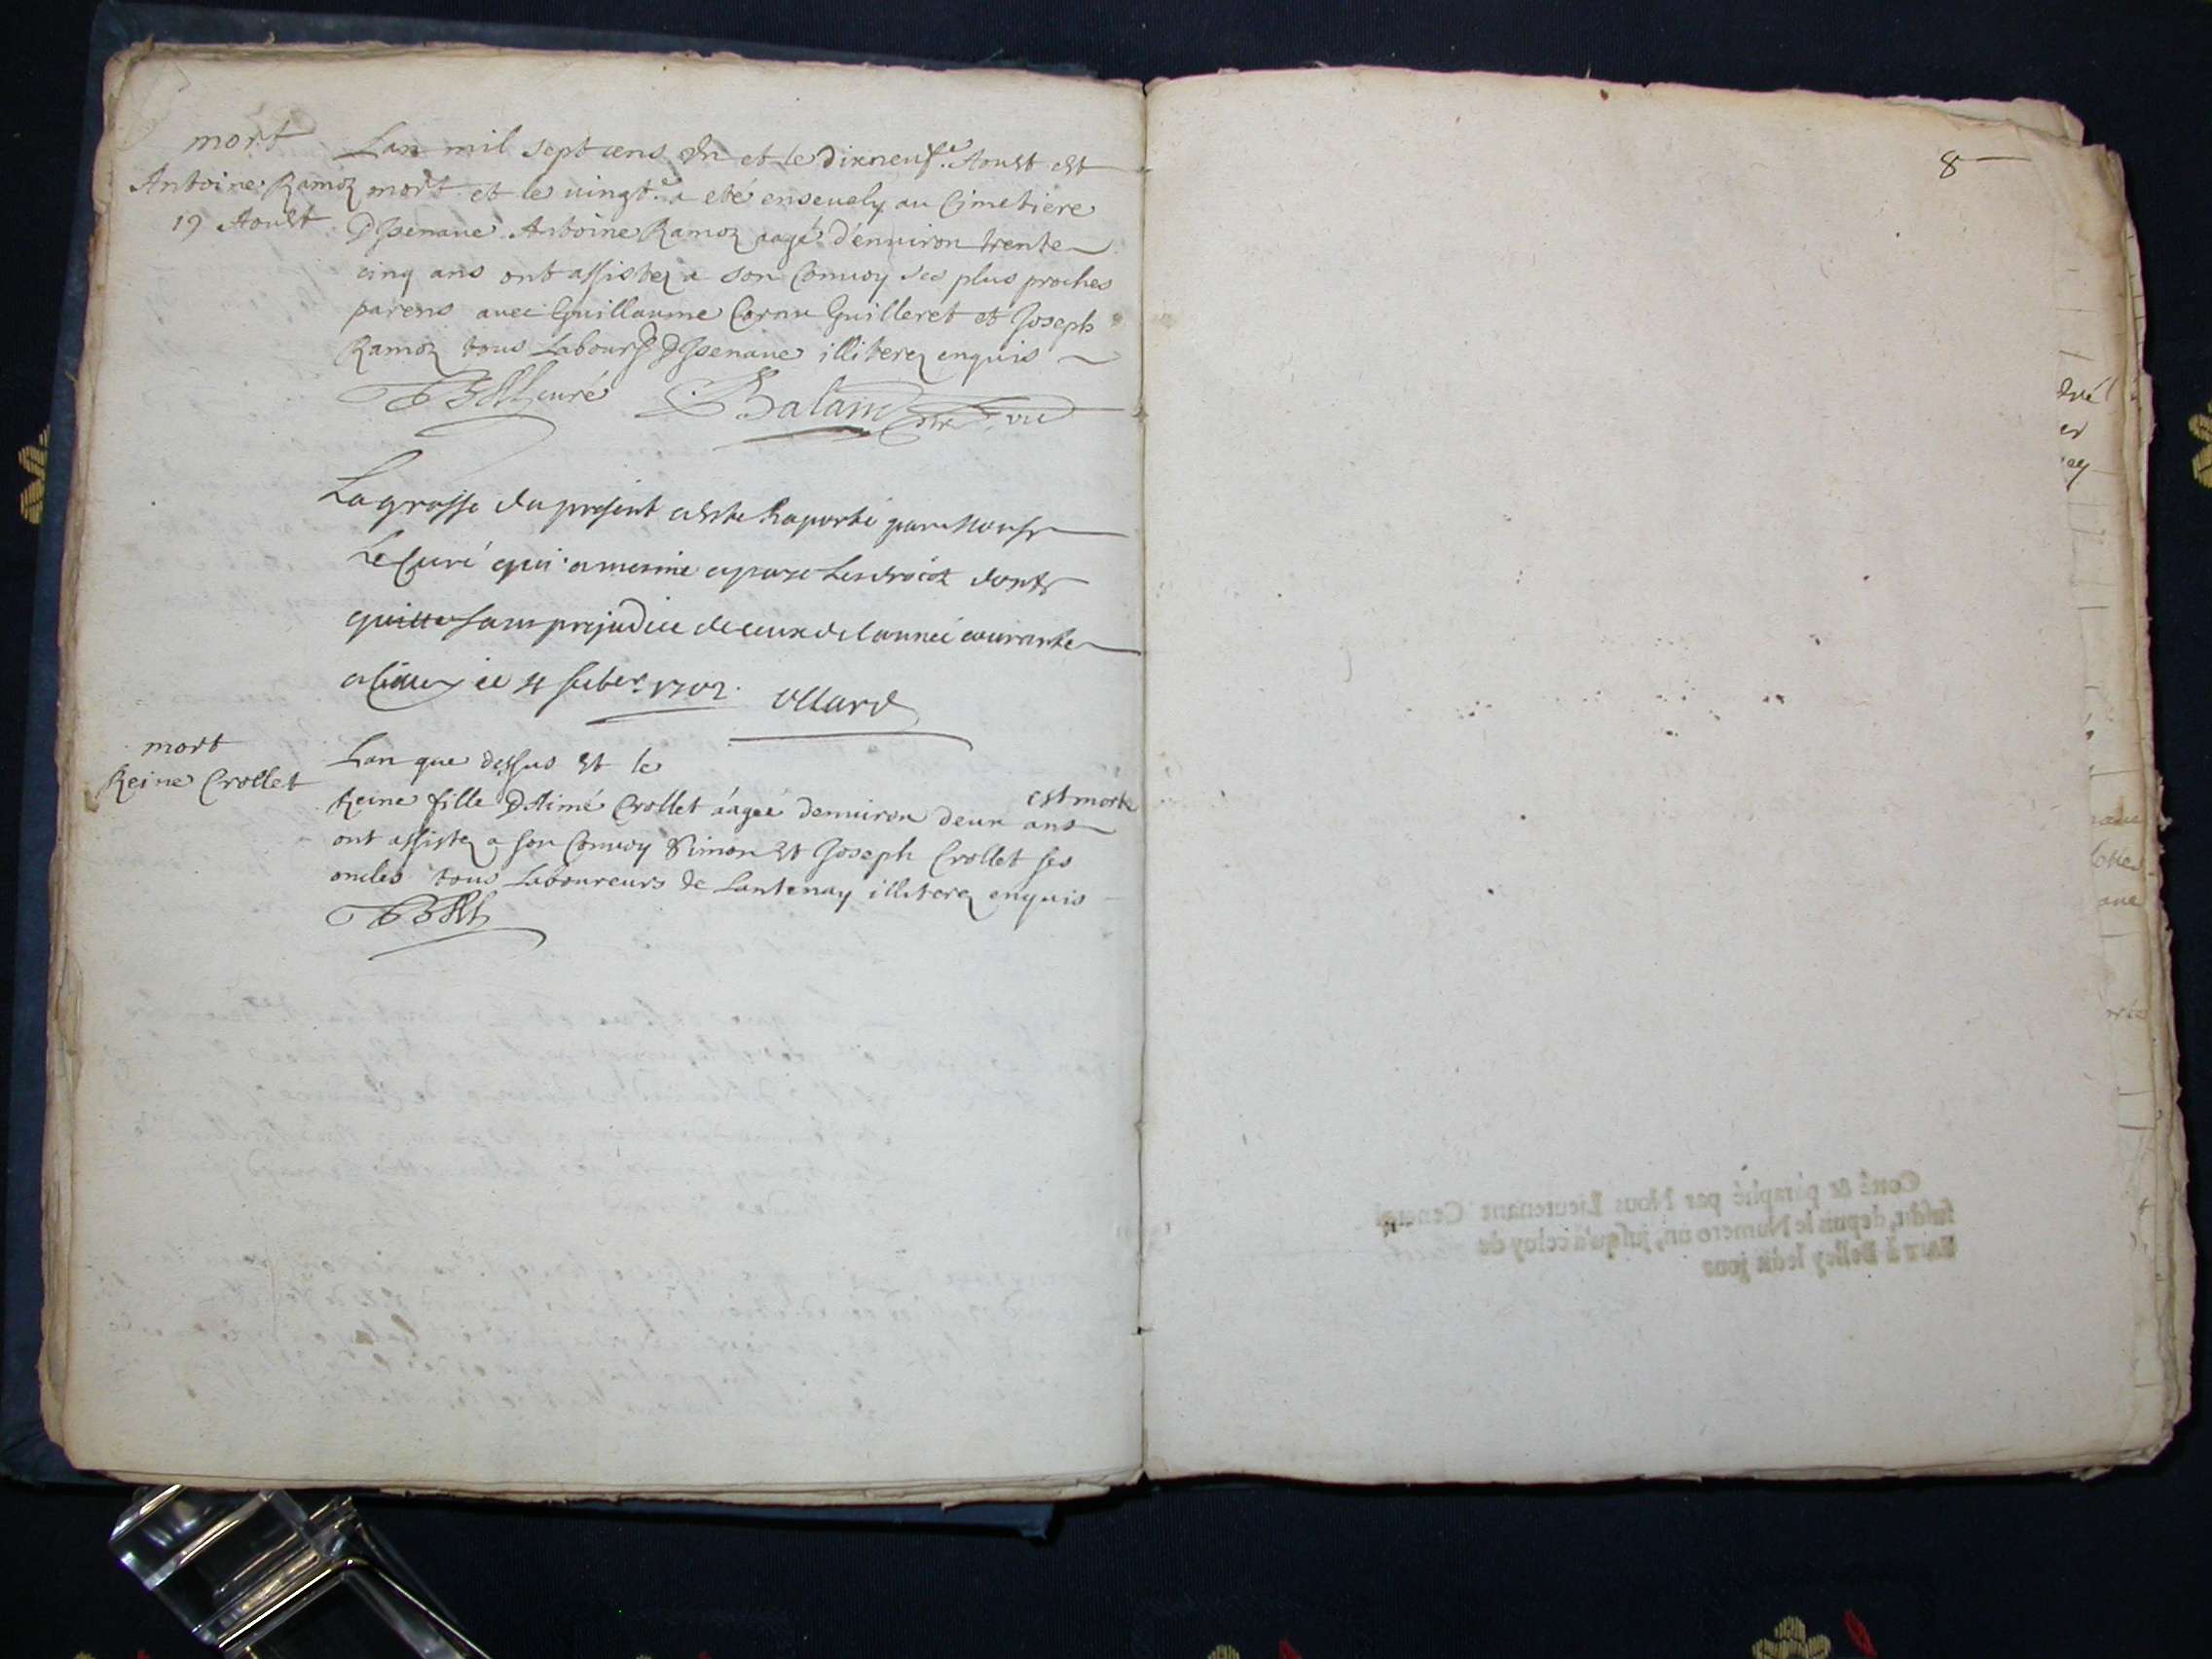 mort
Antoine Ramoz
19 Aoust
Lan mil sept cens un et le dixneuf.e Aoust est
mort et le vingt.e a eté ensevely au Cimetiere
D'Izenave Antoine Ramoz aagé d'environ trente
cinq ans ont assistez a son Convoy ses plus proches
parens avec Guillaume Cornu Guilleret et Joseph
Ramoz tous Labours D'Izenave illiterez enquis
curé Balam
La grosse du present a esté Raporté par Monsr
Le Curé qui a mesme payé Les droictz dont
quitte sans prejudice de ceux de l'année courante
ce 4 1702. Ollard
mort
Reine Crollet
Lan que dessus Et le
est morte
Reine fille D'Aimé Crollet aagée d'environ deux ans
ont assistez a son Convoy Simon Et Joseph Crollet ses
oncles tous Laboureurs de Lantenay illiterez enquis
8
Cotté & paraphé par Nous Lieutenant General
susdit, depuis le Numero un, jusqu'à celuy de
Fait à Belley ledit jour